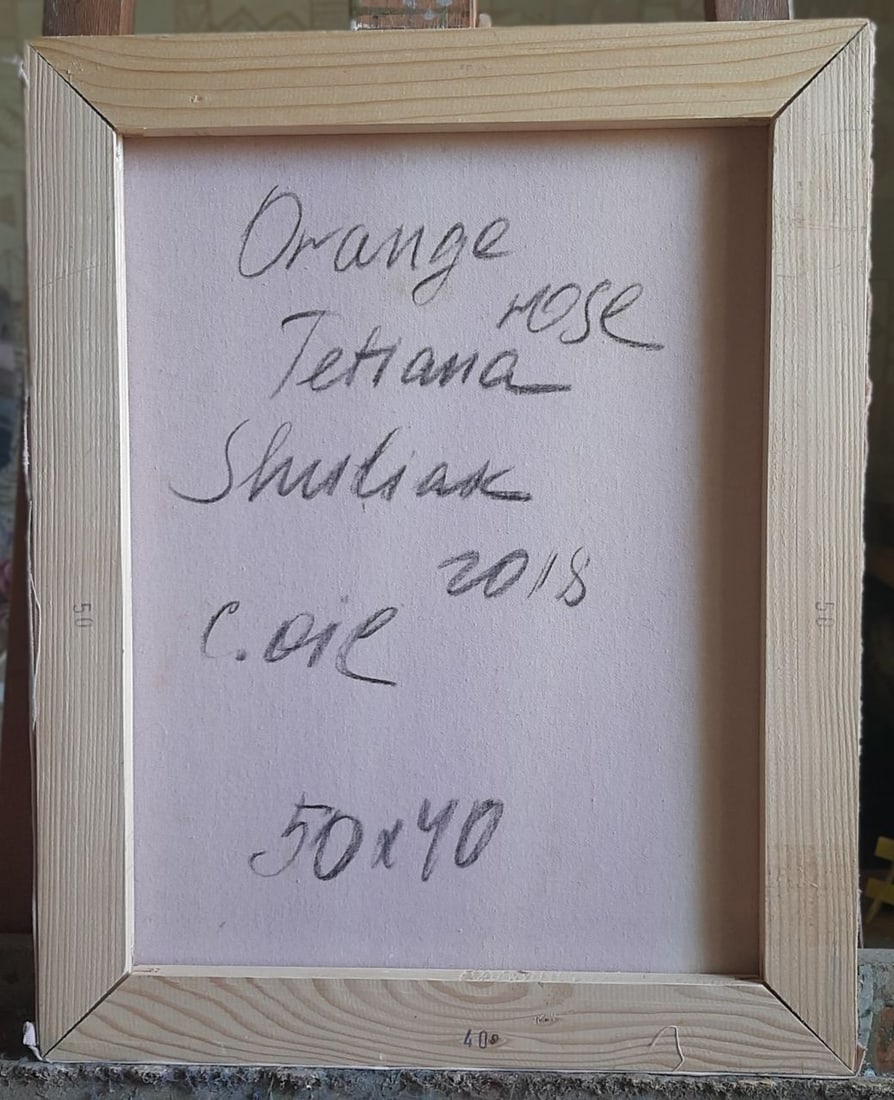 Orange
rose
Tetiana
Shuliak
2018
C. oil
50x40
50
50
40